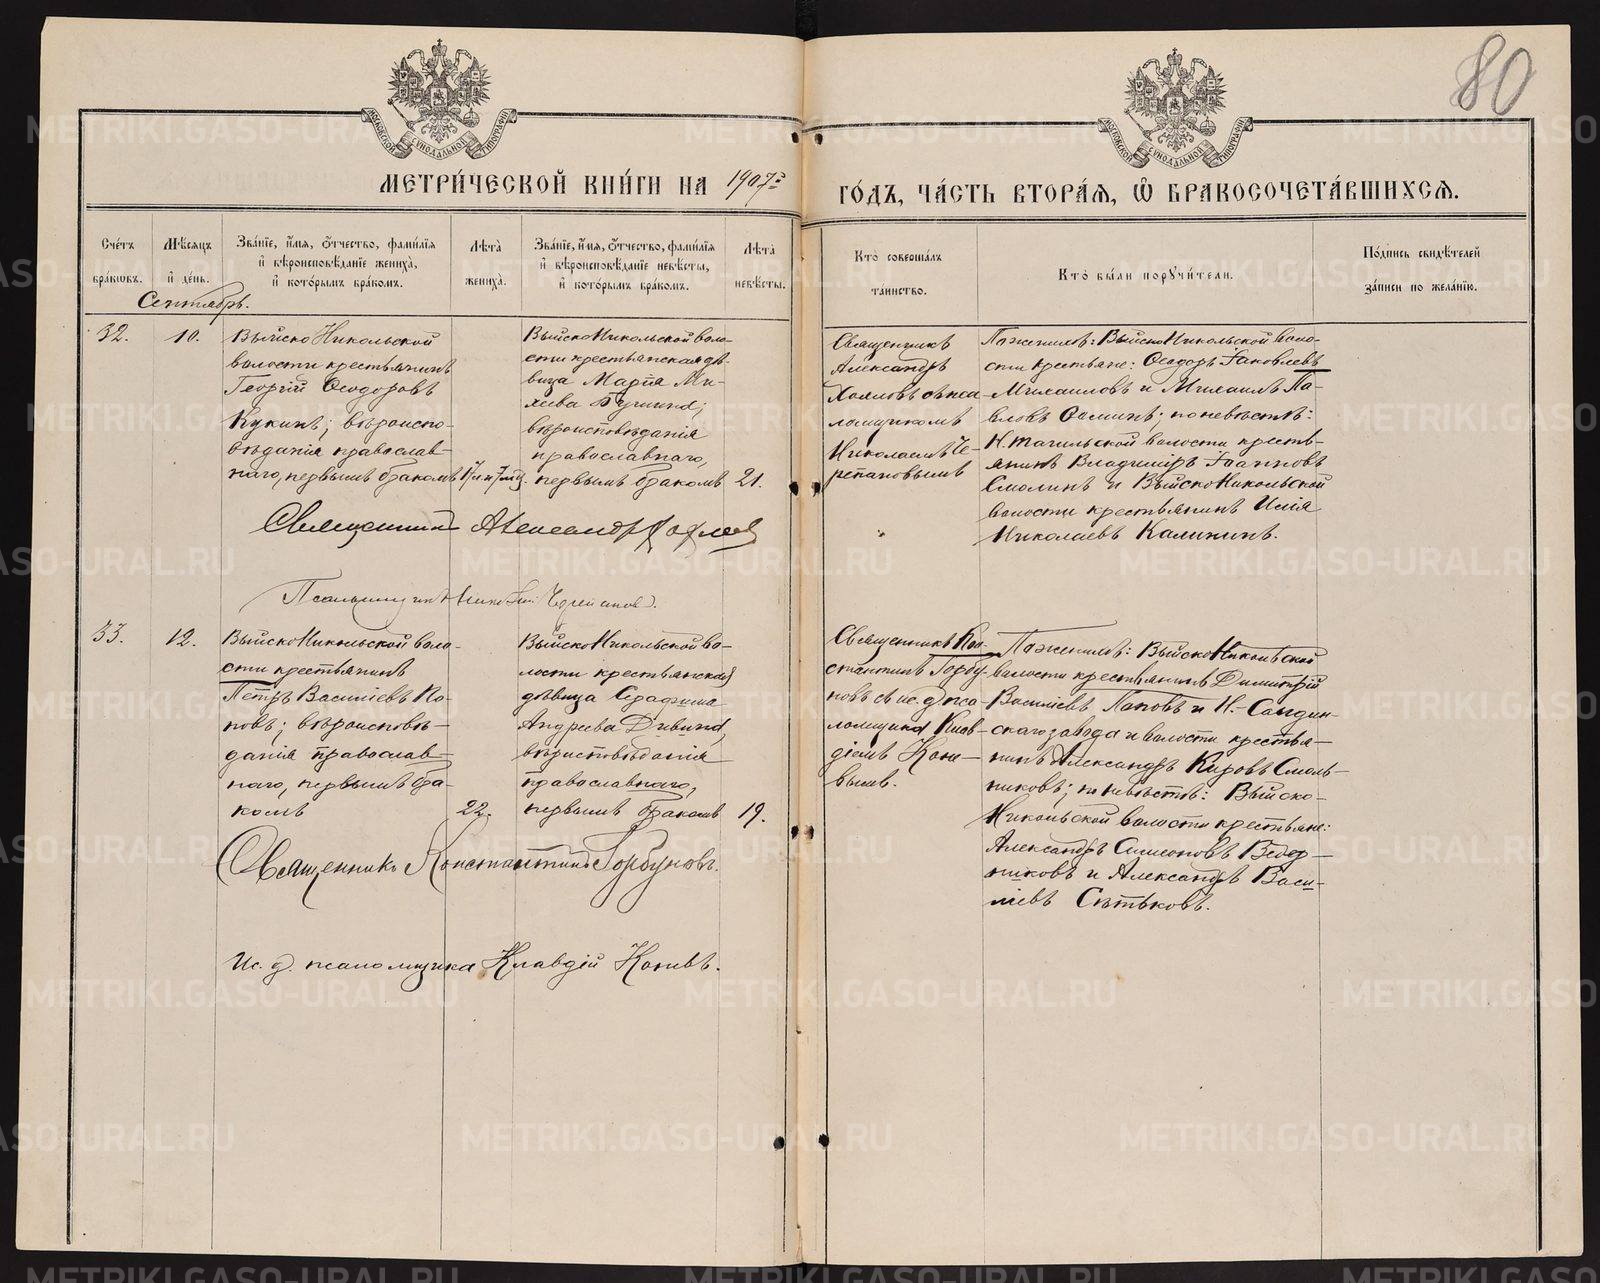 80
МОСКОВСКОЙ СУНОДАЛЬНОЙ ТИПОГРАФІИ
МОСКОВСКОЙ СУНОДАЛЬНОЙ ТИПОГРАФІИ
МЕТРИ́ЧЕСКОЙ КНИ́ГИ НА 1907й
ГО́ДЪ, ЧА́СТЬ ВТОРА́Я, Ѡ҆ БРАКОСОЧЕТА́ВШИХСЯ.
Сче́тъ бра́кѡвъ.
Мѣ́сяцъ и҆ де́нь.
Зва́нїе, и҆́мя, ѻ҆́тчество, фами́лїя и҆ вѣроисповѣ́данїе жениха̀, и҆ кото́рымъ бра́комъ.
Лѣ́та жениха̀.
Зва́нїе, и҆́мя, ѻ҆́тчество, фами́лїя и҆ вѣроисповѣ́данїе невѣ́сты, и҆ кото́рымъ бра́комъ.
Лѣ́та невѣ́сты.
Кто̀ соверша́лъ та́инство.
Кто̀ бы́ли порꙋчи́тели.
По́дпись свидѣ́телей за́писи по жела́нїю.
Сентябрь.
32.
10.
Выйско Никольской
волости крестьянинъ
Георгій Ѳеодоровъ
Кукинъ; вѣроиспо-
вѣданія православ-
наго, первымъ бракомъ
Выйско Никольской воло-
сти крестьянская дѣ-
вица Марія Ми-
хеева
вѣроисповѣданія
православнаго,
первымъ бракомъ
21.
Священникъ
Александръ
Хохловъ съ пса-
ломщикомъ
Николаемъ Че-
репановымъ
По женихѣ: Выйско Никольской воло-
сти крестьяне: Ѳеодоръ Іаковлевъ
Михаиловъ и Михаилъ Па-
вловъ Ѳоминъ; по невѣстѣ:
Н. Тагильской волости кресть-
янинъ Владиміръ Іоанновъ
Смолинъ и Выйско Никольской
волости крестьянинъ Илія
Николаевъ Калининъ.
Священникъ Александръ Хохловъ
Псаломщикъ Николай Черепановъ.
33.
12.
Выйско Никольской воло-
сти крестьянинъ
Петръ Василіевъ По-
повъ; вѣроисповѣ-
данія православ-
наго, первымъ бра-
комъ
22.
Выйско Никольской во-
лости крестьянская
дѣвица Серафима
Андреева Дивина,
вѣроисповѣданія
православнаго,
первымъ бракомъ
19.
Священникъ Кон-
стантинъ Горбу-
новъ съ ис. д. пса-
ломщика Клав-
діемъ Коне-
вымъ.
По женихѣ: Выйско Никольской
волости крестьянинъ Димитрій
Василіевъ Поповъ и Н.-Салдин-
скаго завода и волости крестья-
нинъ Александръ Кировъ Смоль-
никовъ; по невѣстѣ: Выйско-
Никольской волости крестьяне:
Александръ Симеоновъ Бобор-
никовъ и Александръ Васи-
ліевъ Сѣтьковъ.
Священникъ Константинъ Горбуновъ.
Ис. д. псаломщика Клавдій Коневъ.